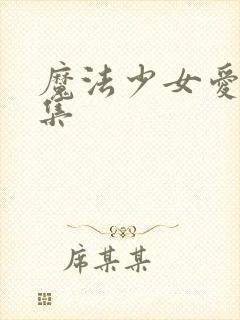 魔法少女愛
集
席某某